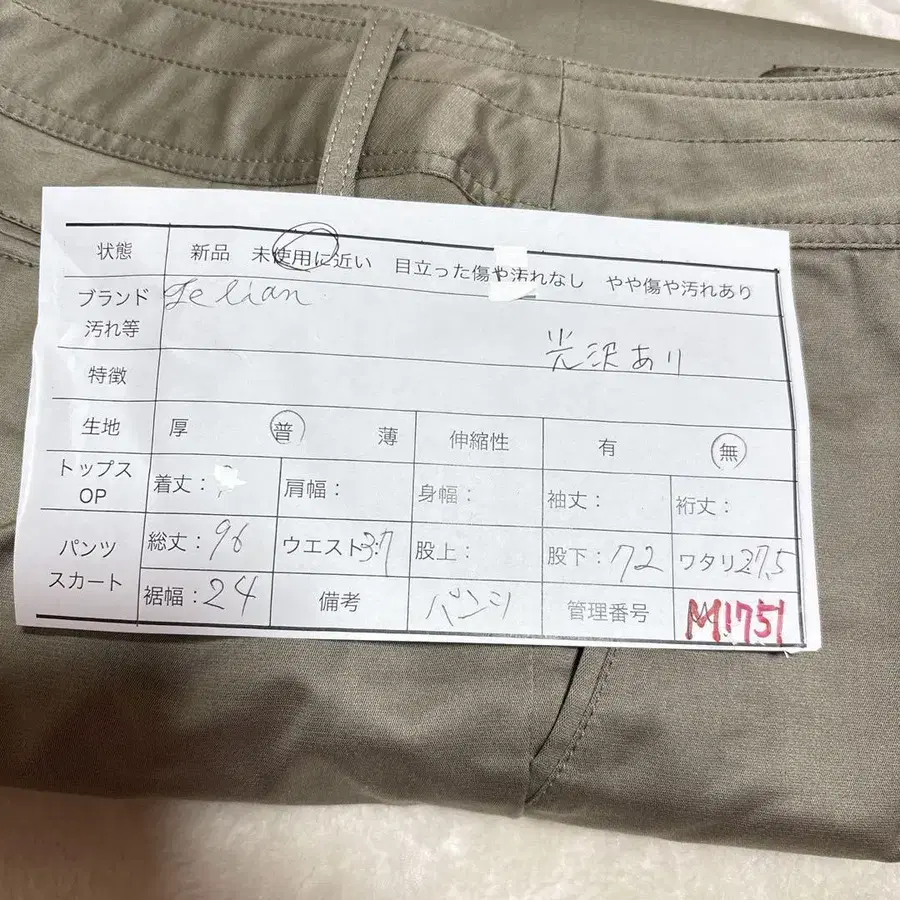 状態 新品 未使用に近い 目立った傷や汚れなし やや傷や汚れあり
ブランド Lelian
汚れ等
光沢あり
特徴
生地 厚 普 薄 伸縮性 有 無
トップス OP 着丈: 肩幅: 身幅: 袖丈: 裄丈:
パンツ スカート 総丈:96 ウエスト37 股上: 股下:72 ワタリ27.5
裾幅:24 備考 パンツ 管理番号 M1751